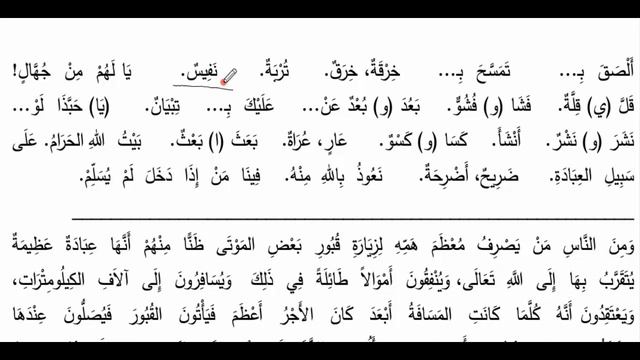 أَلْصَقَ بِـ... تَمَسَّحَ بِـ... خِرْقَةٌ، خِرَقٌ. تُرْبَةٌ. نَفِيسٌ. يَا لَهُمْ مِنْ جُهَّالٍ!
قَلَّ (ي) قِلَّةٌ. فَشَا (و) فُشُوٌّ. بَعُدَ (و) بُعْدٌ عَنْ... عَلَيْكَ بِـ... تِبْيَانٌ. (يَا) حَبَّذَا لَوْ...
نَشَرَ (و) نَشْرٌ. أَنْشَأَ. كَسَا (و) كَسْوٌ. عَارٍ، عُرَاةٌ. بَعَثَ (ا) بَعْثٌ. بَيْتُ اللهِ الحَرَامُ. عَلَى
سَبِيلِ العِبَادَةِ. ضَرِيحٌ، أَضْرِحَةٌ. نَعُوذُ بِاللهِ مِنْهُ. فِينَا مَنْ إِذَا دَخَلَ لَمْ يُسَلِّمْ.
وَمِنَ النَّاسِ مَنْ يَصْرِفُ مُعْظَمَ هَمِّهِ لِزِيَارَةِ قُبُورِ بَعْضِ المَوْتَى ظَنًّا مِنْهُمْ أَنَّهَا عِبَادَةٌ عَظِيمَةٌ
يُتَقَرَّبُ بِهَا إِلَى اللَّهِ تَعَالَى، وَيُنْفِقُونَ أَمْوَالًا طَائِلَةً فِي ذَلِكَ وَيُسَافِرُونَ إِلَى آلَافِ الكِيلُومِتْرَاتِ،
وَيَعْتَقِدُونَ أَنَّهُ كُلَّمَا كَانَتِ المَسَافَةُ أَبْعَدَ كَانَ الأَجْرُ أَعْظَمَ فَيَأْتُونَ القُبُورَ فَيُصَلُّونَ عِنْدَهَا